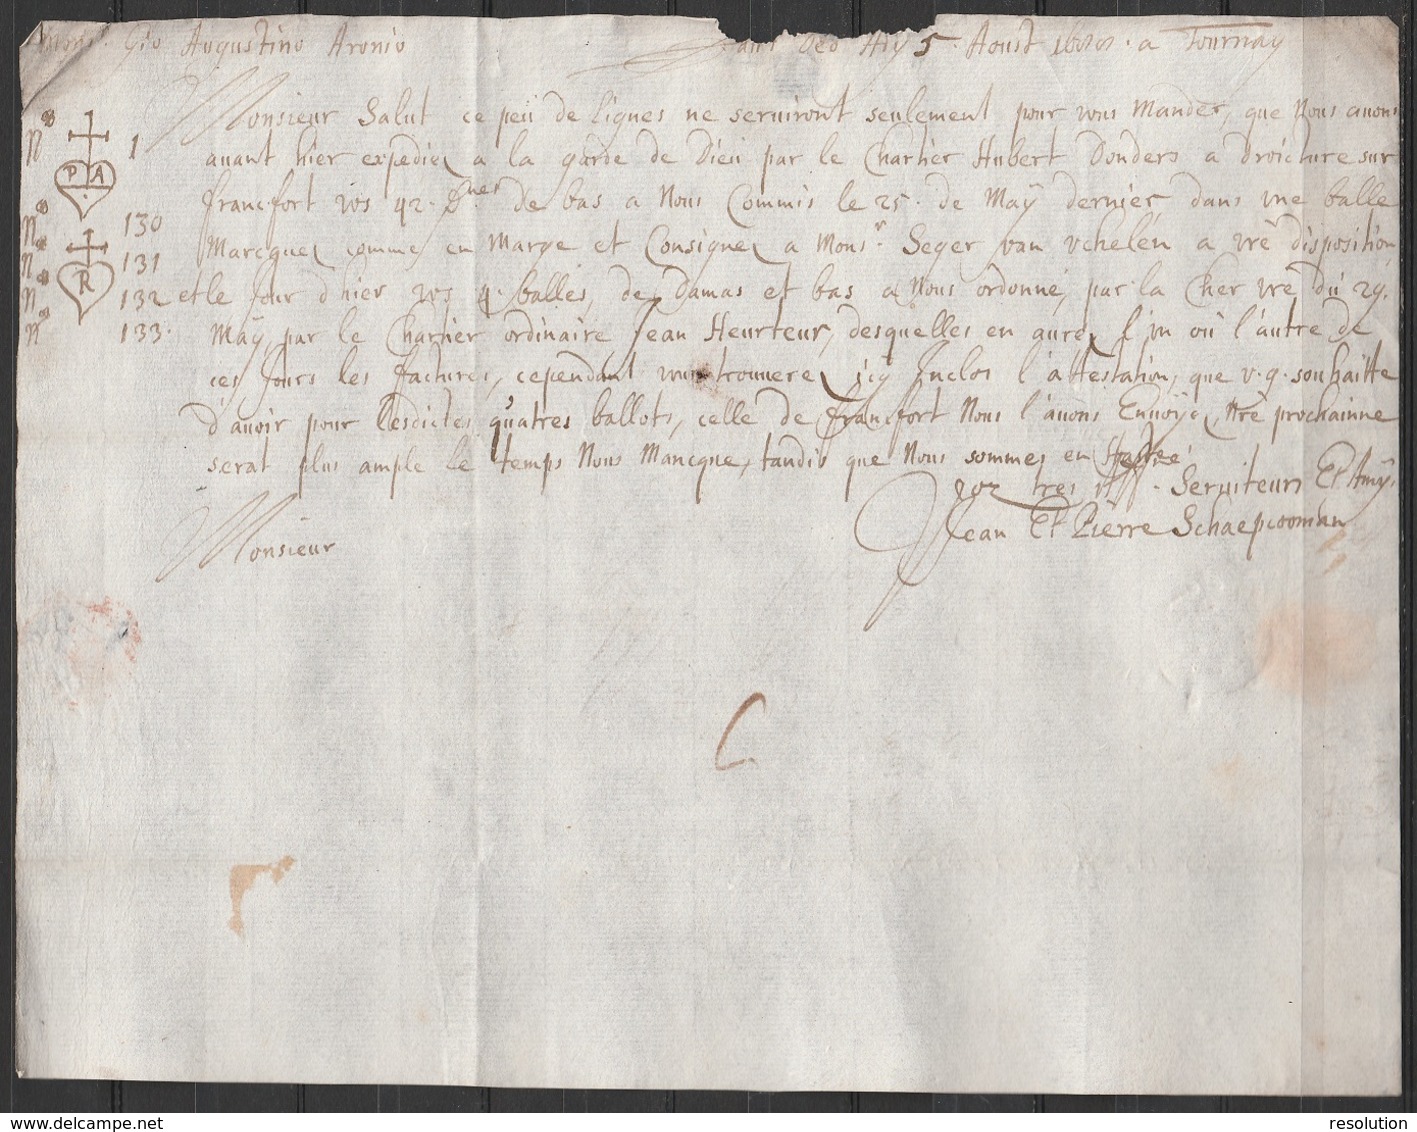 Monsr. Gio Augustino Aronio Laus Deo Ady 5. Aoust 16 . a Tournay
Monsieur Salut ce peu de lignes ne seruiront seulement pour vous mander, que Nous auons
N° 1 auant hier expediez a la garde de Dieu par le Chartier Hubert Donders a droicture sur
P A
N° 130 francfort vos 42. dnes de bas a Nous Commis le 25. de Maÿ dernier dans vne balle
N° 131 Marcquez comme en Marge et Consignez a Monsr. Seger van Vchelen a vre disposition,
R
N° 132 et le Jour d'hier vos 4. balles, de damas et bas a Nous ordonné, par la Cher vre du 29.
N° 133. Maÿ, par le Chartier ordinaire Jean Heurteur, desquelles en aurez l'vn où l'autre de
ces Jours les factures, cependant vous trouuerez icy Inclos l'attestation, que v.g. souhaitte
d'auoir pour lesdictes quatres ballots, celle de francfort Nous l'auons Enuoÿe, Nre prochainne
serat plus ample le temps Nous Mancque, tandis que Nous sommes en
voz tres aff. Seruiteurs Et Amÿs
Monsieur Jean Et Pierre Schaepcooman
resolution